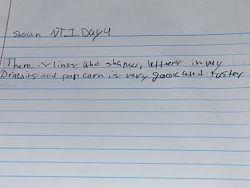 Shawn NTI Day 4
There is lines and shapes, letters in my
Drawing and pop corn is very good and taster